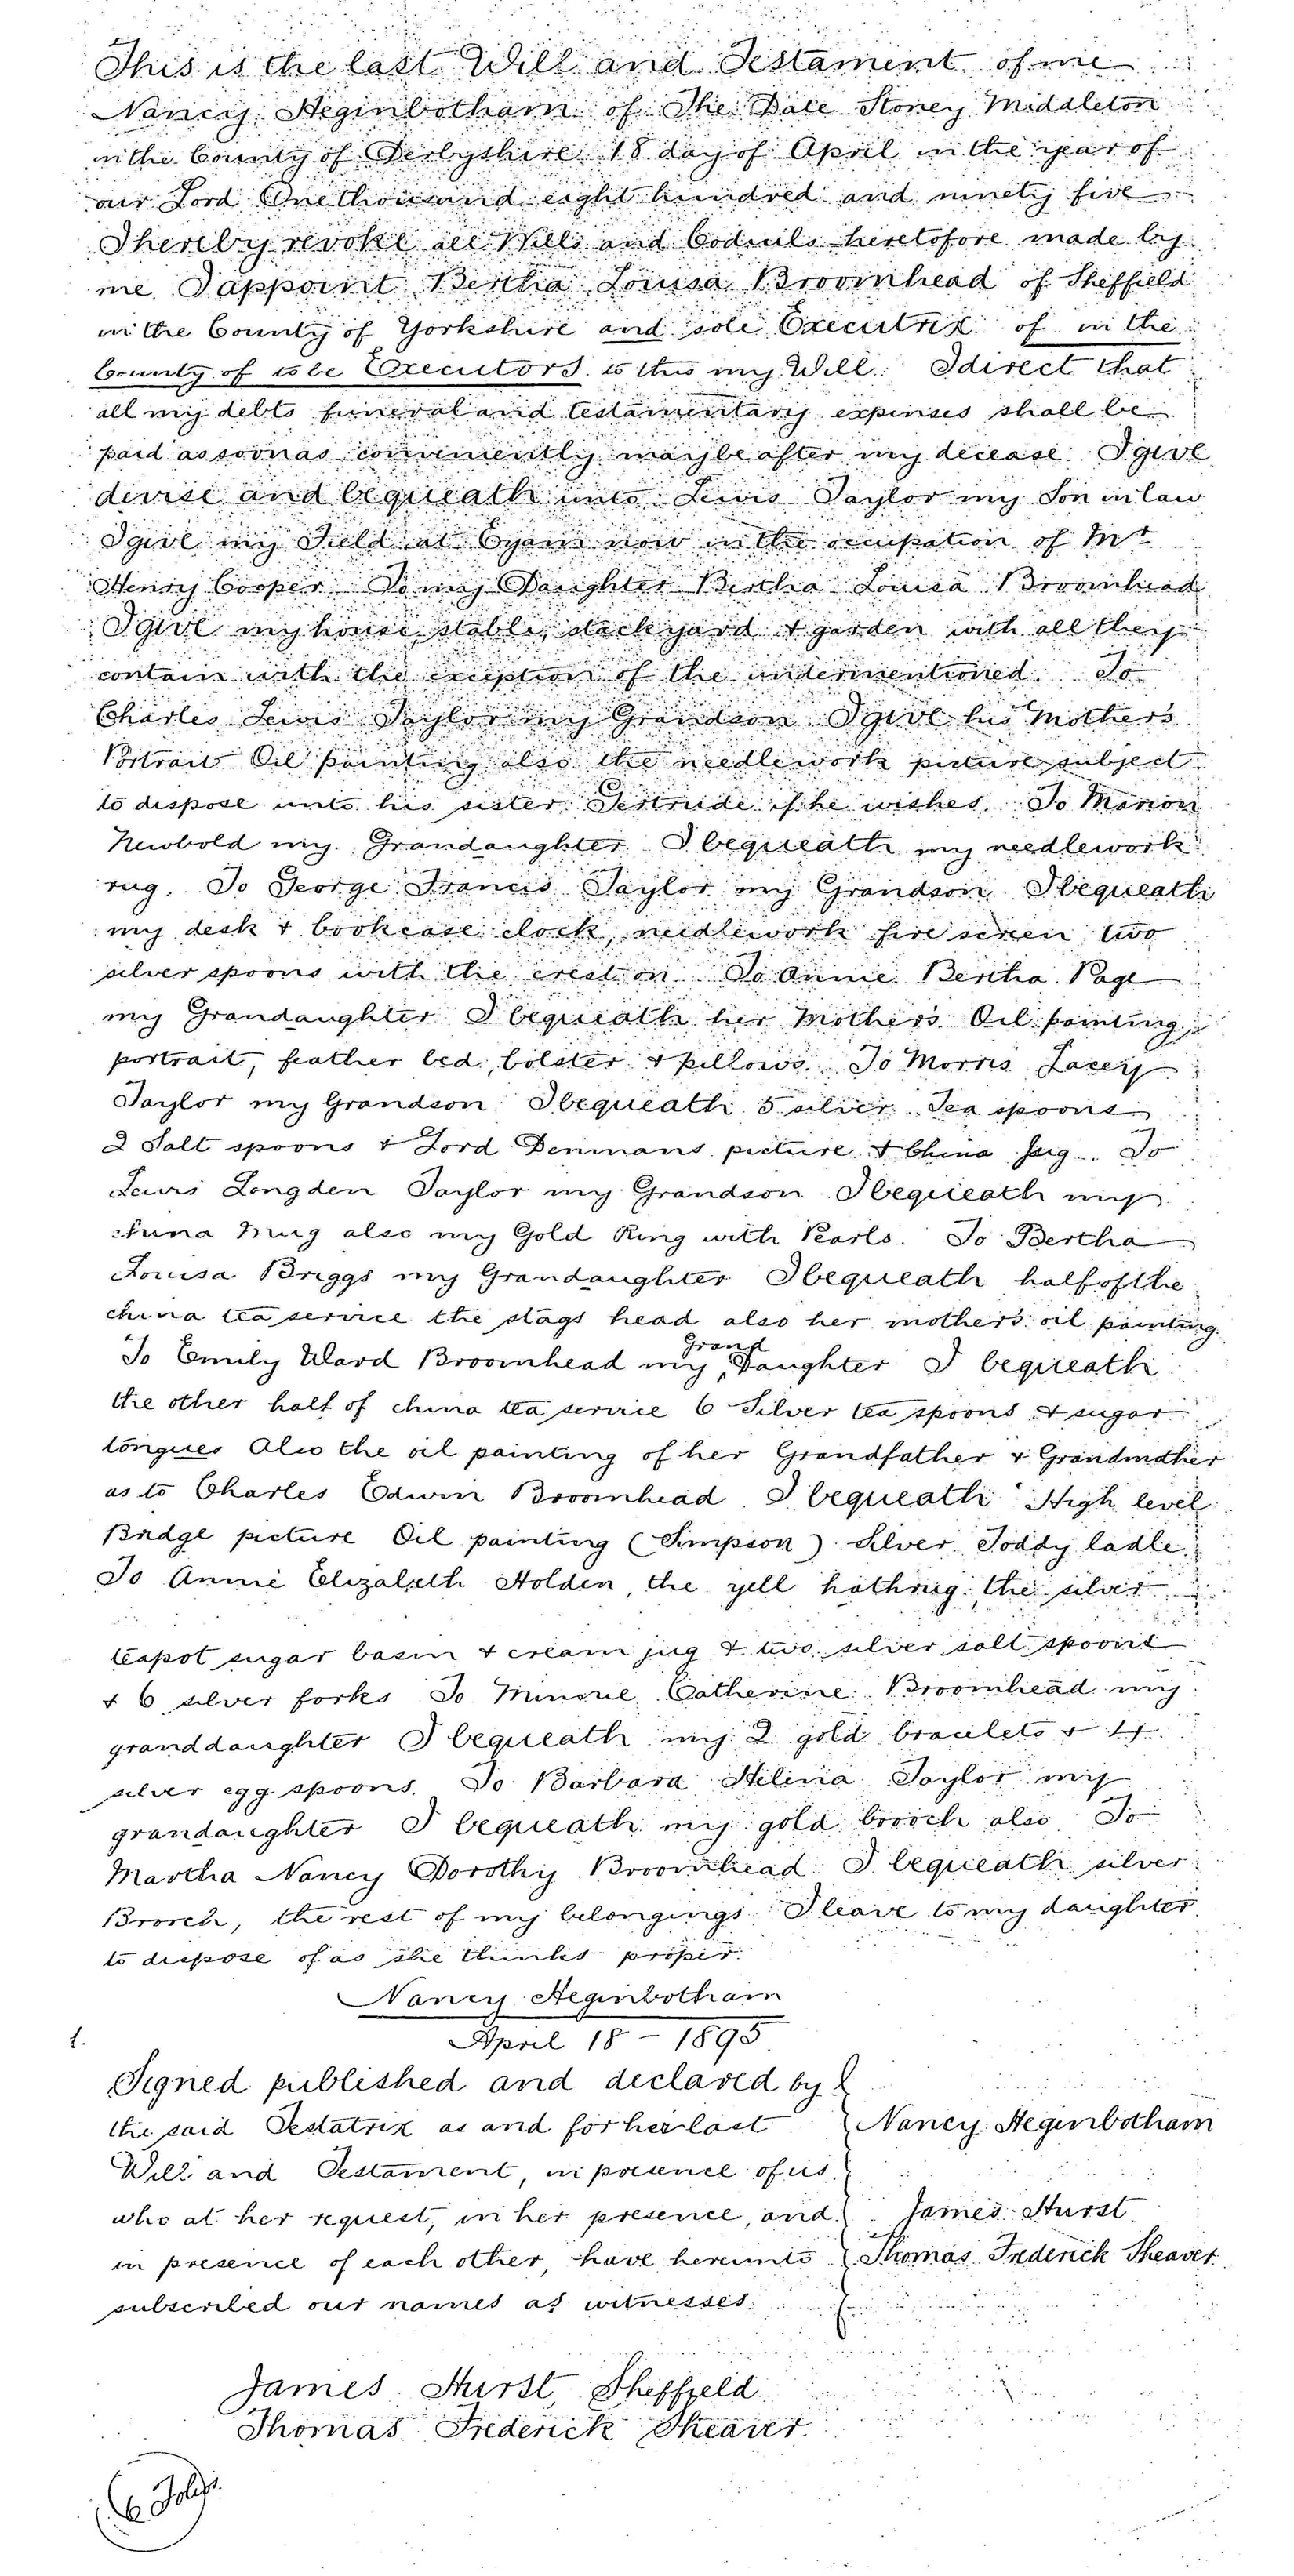 This is the last Will and Testament of me
Nancy Heginbotham of The Dale Stoney Middleton
in the County of Derbyshire 18 day of April in the year of
our Lord One thousand eight hundred and ninety five
I hereby revoke all Wills and Codicils heretofore made by
me I appoint Bertha Louisa Broomhead of Sheffield
in the County of Yorkshire and sole Executrix of in the
County of to be Executors to this my Will. I direct that
all my debts funeral and testamentary expenses shall be
paid as soon as conveniently may be after my decease I give
devise and bequeath unto Lewis Taylor my Son in law
I give my Field at Eyam now in the occupation of Mr
Henry Cooper To my Daughter Bertha Louisa Broomhead
I give my house, stable, stackyard & garden with all they
contain with the exception of the undermentioned. To
Charles Lewis Taylor my Grandson I give his Mothers
Portrait Oil painting also the needlework picture subject
to dispose unto his sister Gertrude if he wishes. To Marion
Newbold my Grandaughter I bequeath my needlework
rug. To George Francis Taylor my Grandson I bequeath
my desk & bookcase clock, needlework fire screen two
silver spoons with the crest on To Annie Bertha Page
my Grandaughter I bequeath her Mother's Oil painting
portrait, feather bed, bolster & pillows. To Morris Lacey
Taylor my Grandson I bequeath 5 silver Tea spoons
2 Salt spoons & Lord Denmans picture & China Jug. To
Lewis Longden Taylor my Grandson I bequeath my
china mug also my Gold Ring with Pearls. To Bertha
Louisa Briggs my Grandaughter I bequeath half of the
china tea service the stags head also her mother's oil painting.
To Emily Ward Broomhead my Grand Daughter I bequeath
the other half of china tea service 6 Silver tea spoons & sugar
tongues Also the oil painting of her Grandfather & Grandmother
as to Charles Edwin Broomhead I bequeath High level
Bridge picture Oil painting (Simpson) Silver Toddy ladle
To Annie Elizabeth Holden, the yell the silver
teapot sugar basin & cream jug & two silver salt spoons
& 6 silver forks To Minnie Catherine Broomhead my
granddaughter I bequeath my 2 gold bracelets & 4
silver egg spoons. To Barbara Helena Taylor my
grandaughter I bequeath my gold brooch also To
Martha Nancy Dorothy Broomhead I bequeath silver
Brooch, the rest of my belongings I leave to my daughter
to dispose of as she thinks proper.
Nancy Heginbotham
April 18 - 1895
1.
Signed published and declared by
the said Testatrix as and for her last Nancy Heginbotham
Will and Testament, in presence of us
who at her request, in her presence, and James Hurst
in presence of each other, have hereunto Thomas Frederick Sheaver
subscribed our names as witnesses.
James Hurst, Sheffield
Thomas Frederick Sheaver.
6 Folys.